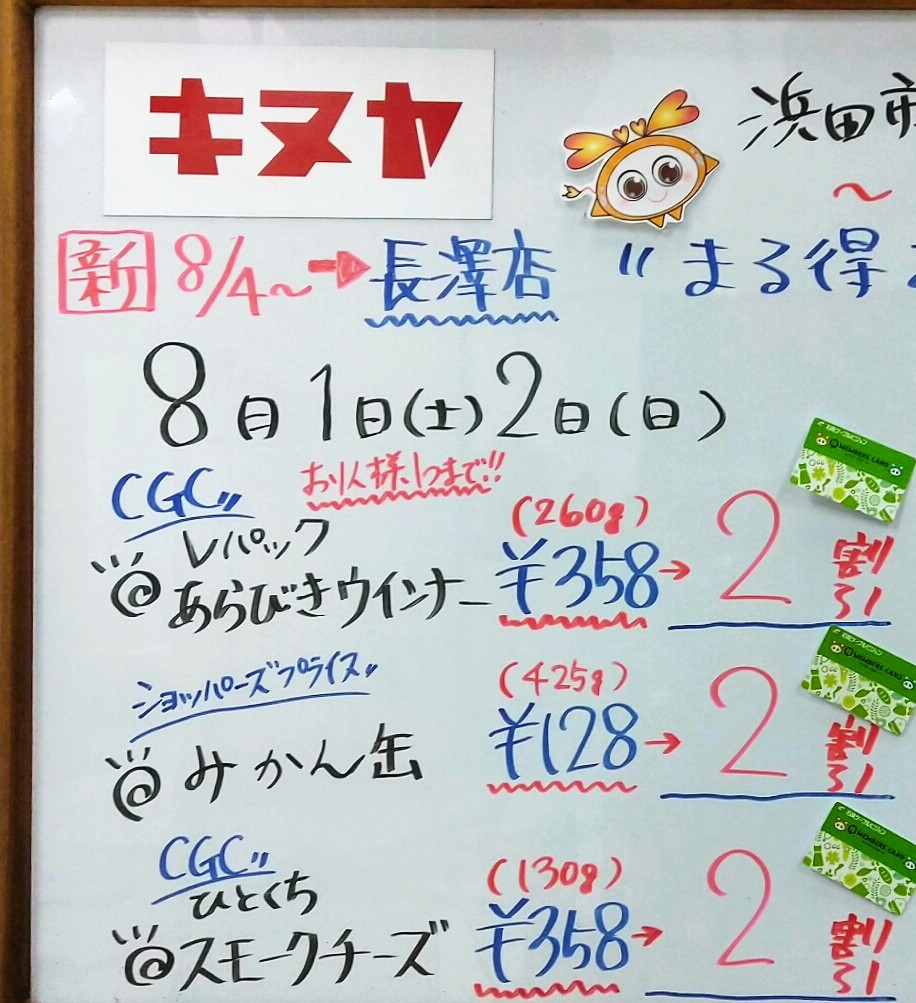 キヌヤ
浜田市
～
新 8/4～ → 長澤店 "まる得
8月1日(土)2日(日)
CGC〃 お1人様、1つまで!!
レパック (260g)
@あらびきウインナー ¥358→ 2割引
ショッパーズプライス〃 (425g)
@みかん缶 ¥128→ 2割引
CGC〃 (130g)
ひとくち
@スモークチーズ ¥358→ 2割引
MEMBERS CARD
MEMBERS CARD
MEMBERS CARD